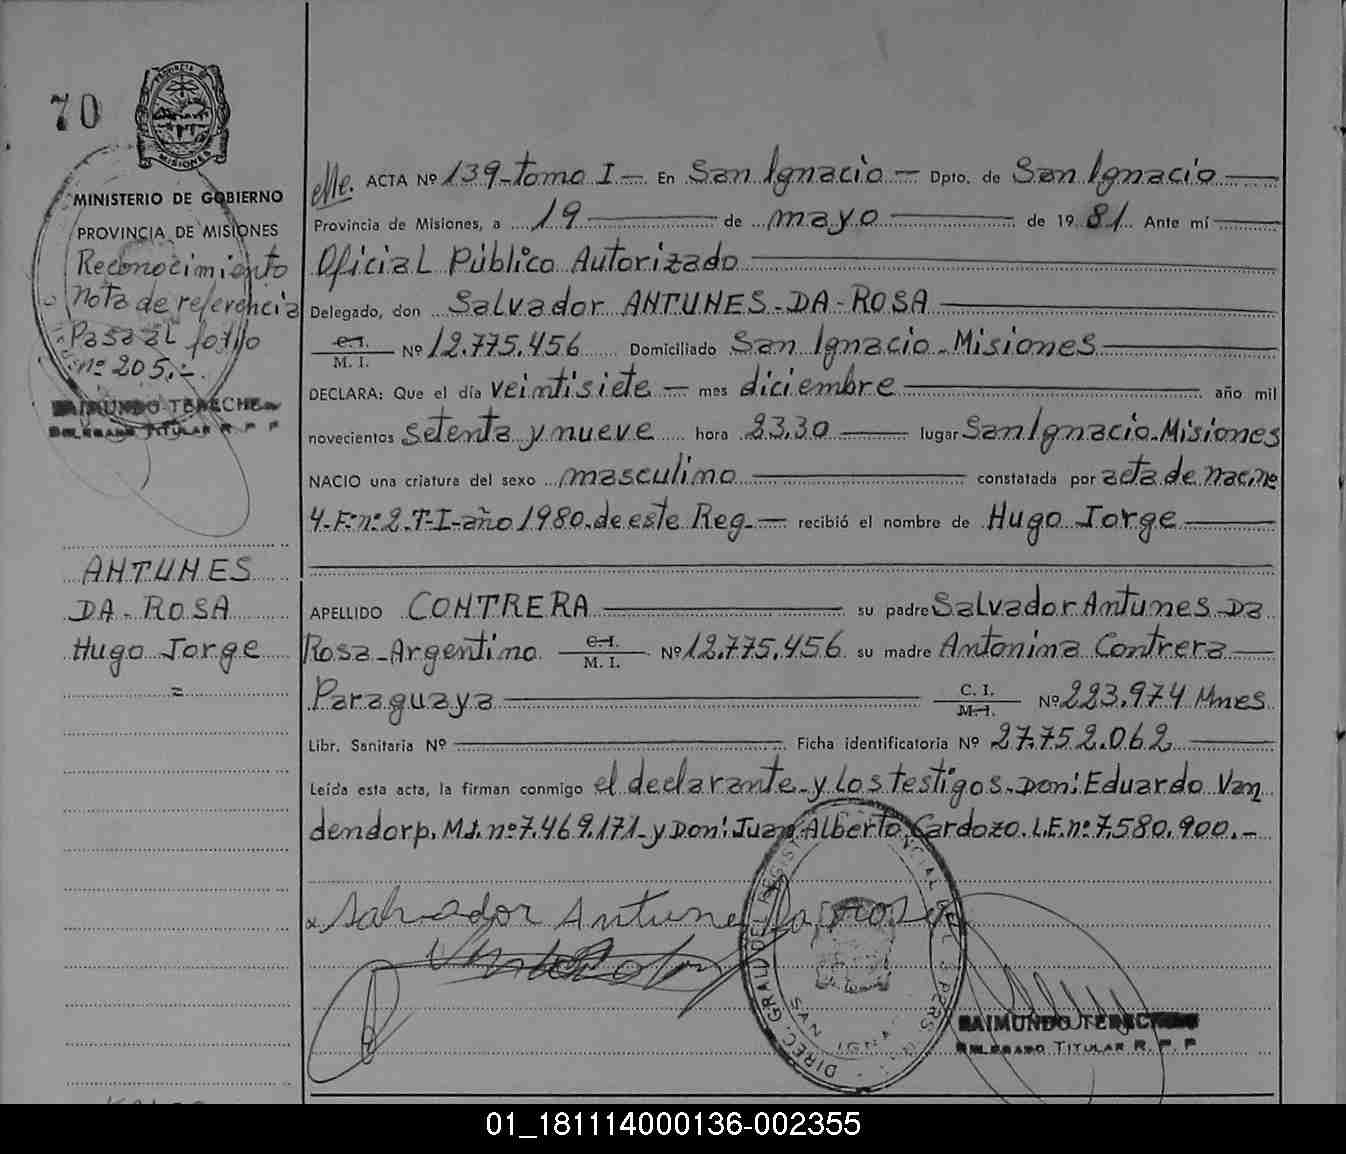 70
PROVINCIA DE
MISIONES
MINISTERIO DE GOBIERNO
PROVINCIA DE MISIONES
Reconocimiento
nota de referencia
Pasa al folio
nº 205.-
RAIMUNDO TERECHE
DELEGADO TITULAR R. P. P
ANTUNES
DA-ROSA
Hugo Jorge
=
ACTA Nº 139-tomo I- En San Ignacio - Dpto. de San Ignacio
Provincia de Misiones, a 19 de mayo de 19 81 Ante mí
Oficial Público Autorizado
Delegado, don Salvador ANTUNES-DA-ROSA
C.I.
M. I. Nº 12.775.456 Domiciliado San Ignacio-Misiones
DECLARA: Que el día veintisiete - mes diciembre año mil
novecientos setenta y nueve hora 23,30 lugar San Ignacio-Misiones
NACIO una criatura del sexo masculino constatada por acta de nac.ne
4-F:nº:2-T-I-año 1980.de este Reg.- recibió el nombre de Hugo Jorge
APELLIDO CONTRERA su padre Salvador Antunes Da
Rosa-Argentino. C.I. M. I. Nº 12.775.456 su madre Antonina Contrera
Paraguaya C. I. M.I. Nº 223.974 Mnes
Libr. Sanitaria Nº Ficha identificatoria Nº 27.752.062
Leída esta acta, la firman conmigo el declarante-y los testigos-Don: Eduardo Van
dendorp. M.I. nº 7.469.171-y Don: Juan Alberto Cardozo. L.E. nº 7.580.900.-
Salvador Antune da rosa
DIREC. GRAL. DEL REGIST PROVINCIAL DE L S PERS
SAN IGNA
RAIMUNDO TERECHE
DELEGADO TITULAR R. P. P
01_181114000136-002355